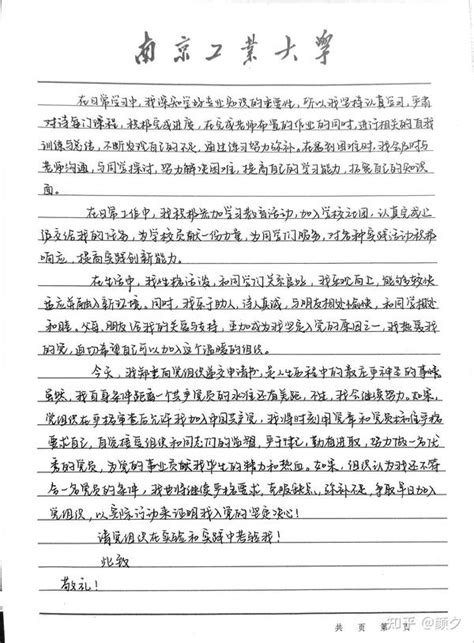 南京工业大学
在日常学习中，我深知学好专业知识的重要性，所以我坚持认真学习，严肃
对待每门课程，积极完成进度，在完成老师布置的作业的同时，进行相关的自我
训练与总结，不断发现自己的不足，通过练习努力弥补。在遇到困难时，我会及时与
老师沟通，与同学探讨，努力解决困难，提高自己的学习能力，拓展自己的知识
面。
在日常工作中，我积极参加学习教育活动，加入学校社团，认真完成上
级交给我的任务，为学校贡献一份力量，为同学们服务，对各种实践活动积极
响应，提高实践创新能力。
在生活中，我性格活泼，和同学们关系良好，我乐观向上，能够较快
适应并融入新环境。同时，我乐于助人，待人真诚，与朋友相处愉快，和同学相处
和睦，父母，朋友给我的关爱与支持，更加成为我坚定入党的原因之一，我热爱我
的党，迫切希望自己可以加入这个温暖的组织。
今天，我郑重向党组织递交申请书，是人生历程中的最庄重神圣的事情
虽然，我自身条件距离一个共产党员的水准还有差距，不过，我会继续努力。如果，
党组织在严格审查后允许我加入中国共产党，我将时刻用党章和党员标准严格
要求自己，自觉接受组织和同志们的监督，严于律己，勤奋进取，努力做一名优
秀的党员，为党的事业贡献我毕生的精力和热血。如果，组织认为我还不符
合一名党员的条件，我也将继续严格要求，克服缺点，弥补不足，争取早日加入
党组织，以实际行动来证明我入党的坚定决心！
请党组织在实验和实践中考验我！
此致
敬礼！
共 页 第 页
知乎 @颜夕